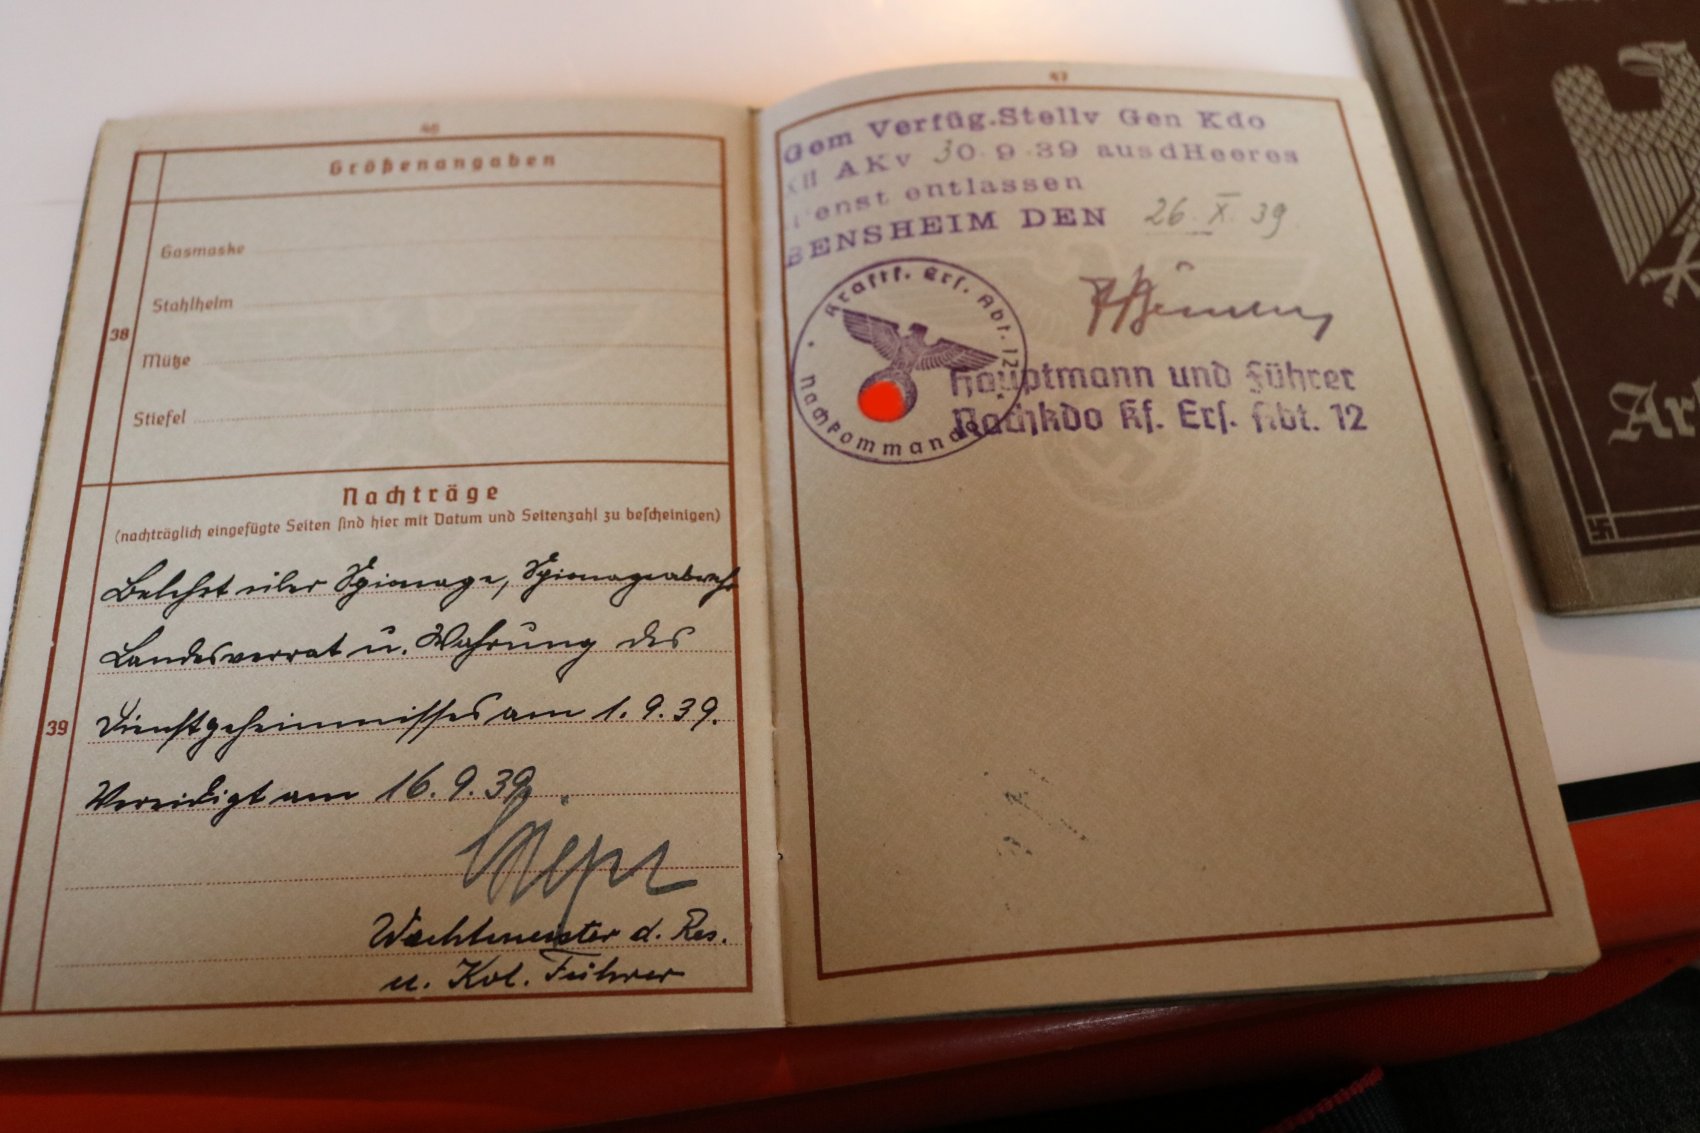 46
Größenangaben
Gasmaske
Stahlhelm
38
Mütze
Stiefel
Nachträge
(nachträglich eingefügte Seiten sind hier mit Datum und Seitenzahl zu bescheinigen)
Belehrt über Spionage, Spionageabwehr
Landesverrat u. Wahrung des
39
Dienstgeheimnisses am 1.9.39.
Vereidigt am 16.9.39.
Wachtmeister d. Res.
u. Kol. Führer
47
Gem Verfüg.Stellv Gen Kdo
XII AKv 30.9.39 ausdHeeres
dienst entlassen
BENSHEIM DEN 26. X. 39
Kraftf. Ers. Abt. 12
Nachkommando
Hauptmann und Führer
Nachkdo Kf. Ers. Abt. 12
Ar